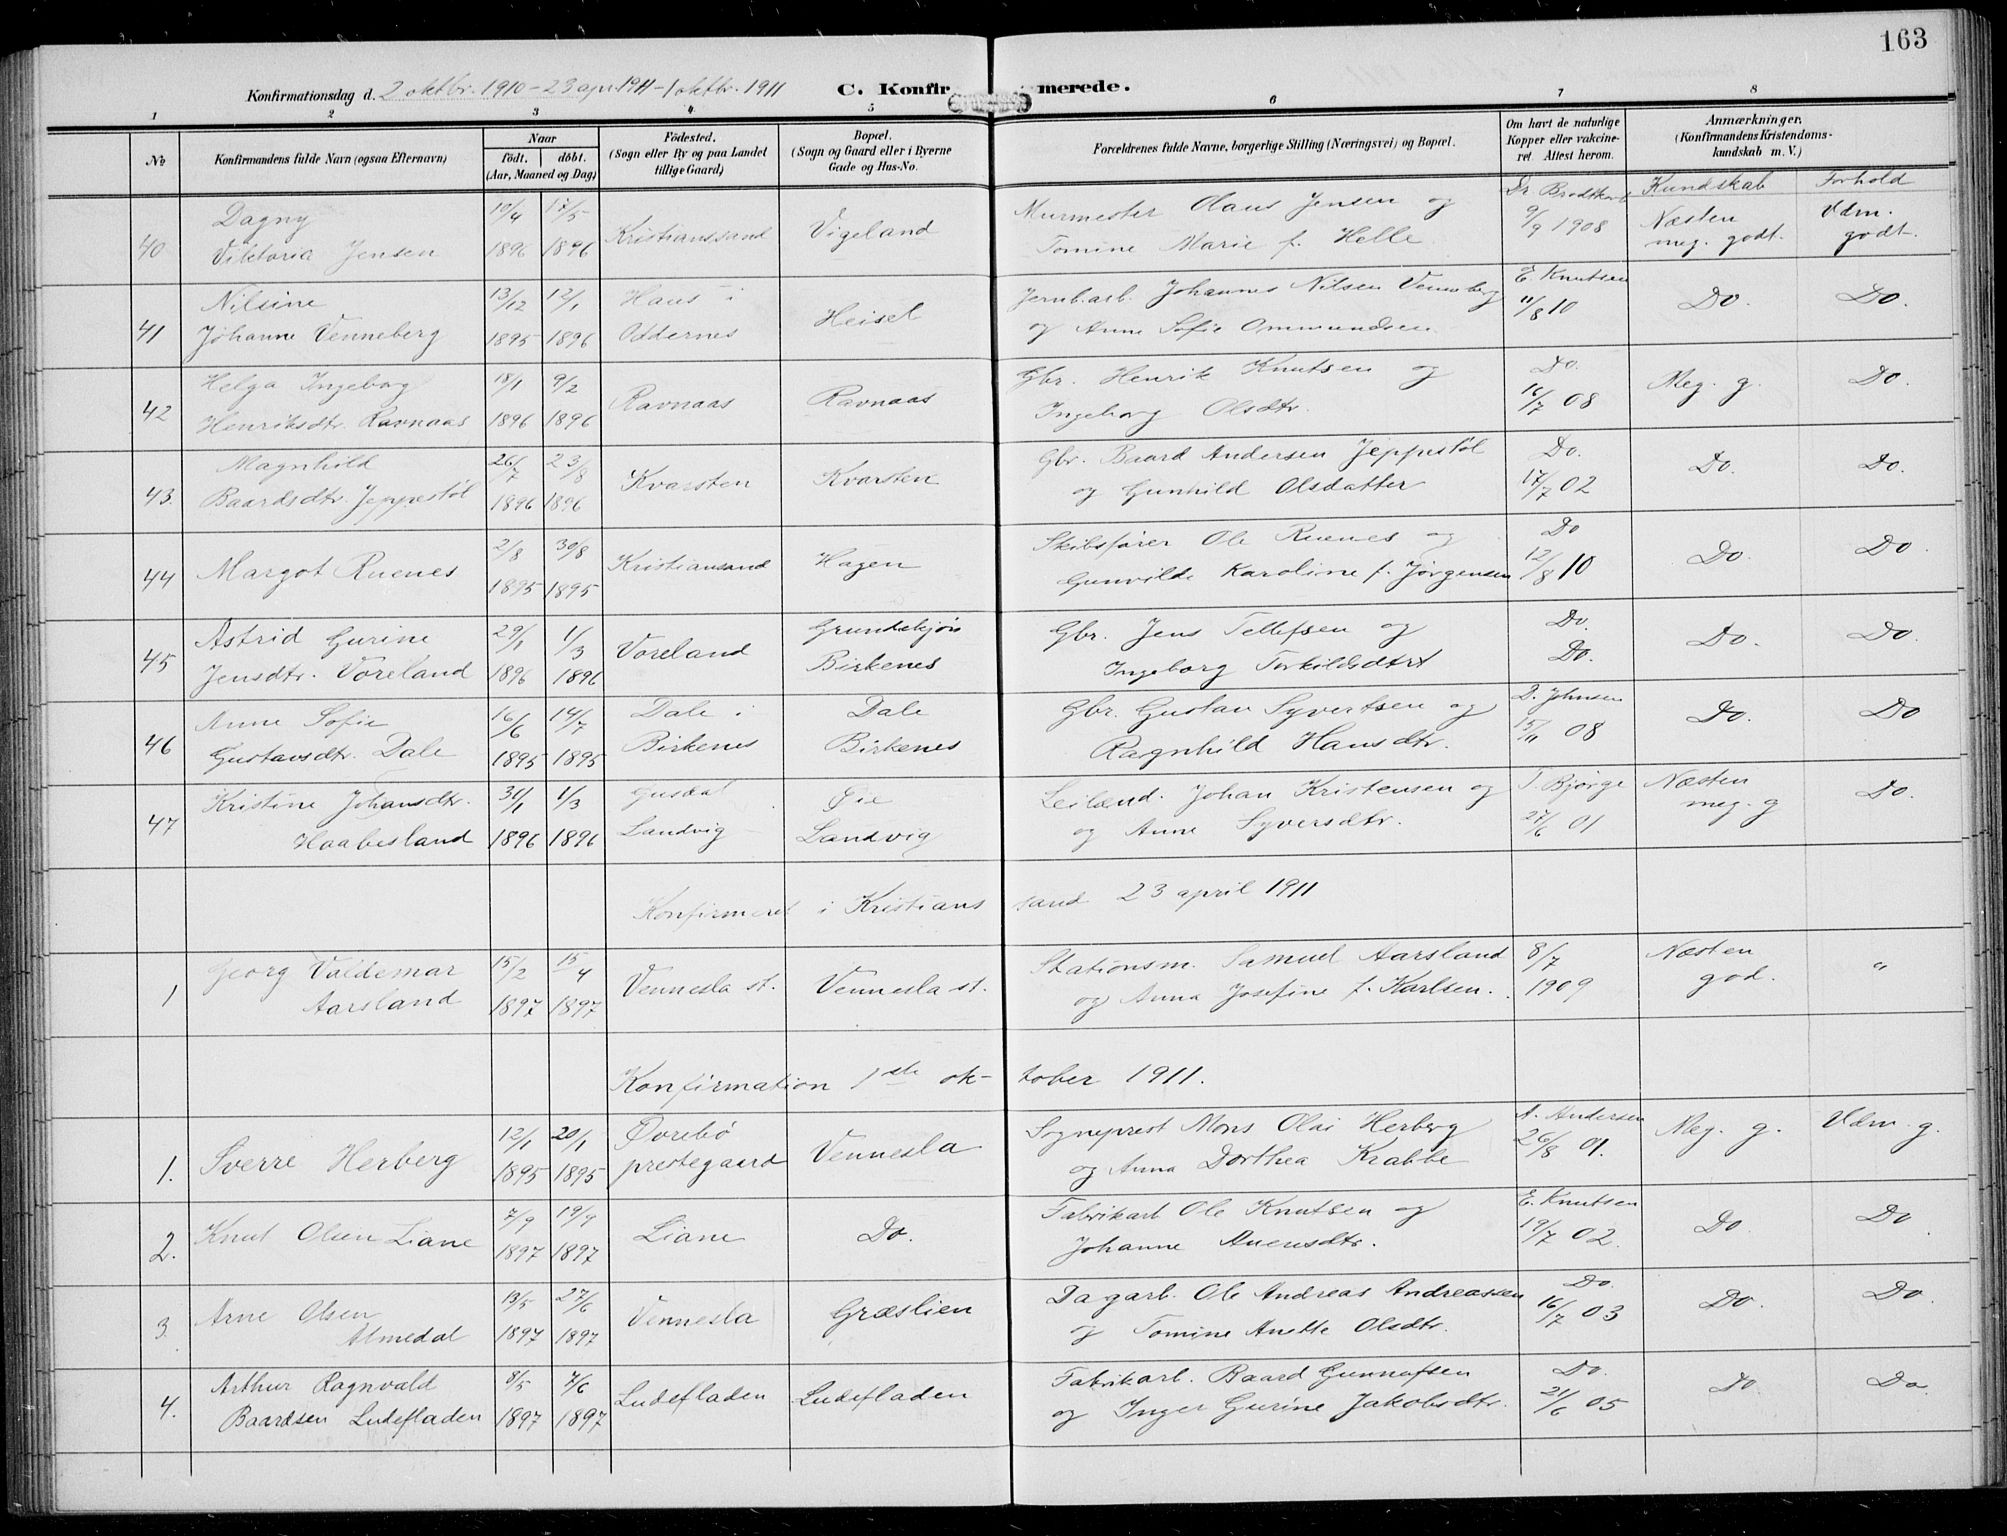 163
Konfirmationsdag d. 2 oktbr. 1910 - 23 apr. 1911 - 1 oktbr. 1911 C. Konfirmerede.
1 2 3 4 5 6 7 8
No
Konfirmandens fulde Navn (ogsaa Efternavn)
Naar
födt. döbt.
(Aar, Maaned og Dag)
Födested.
(Sogn eller By og paa Landet
tillige Gaard)
Bopæl.
(Sogn og Gaard eller i Byerne
Gade og Hus-No.
Forældrenes fulde Navne, borgerlige Stilling (Næringsvei) og Bopæl.
Om havt de naturlige
Kopper eller vakcine-
ret Attest herom.
Anmærkninger.
(Konfirmandens Kristendoms-
kundskab m. V.)
Dagny 10/4 17/5 Murmester Olaus Jensen og Dr Brodtkorb Kundskab Forhold
40 Viktoria Jensen 1896 1896 Kristianssand Vigeland Tomine Marie f. Helle 9/9 1908 Næsten meg. godt. Udm. godt.
Nilsine 13/12 12/1 Haus i Jernb.arb. Johannes Nilsen Venneberg E. Knutsen
41 Johanne Venneberg 1895 1896 Oddernes Heisel og Anne Sofie Ommundsen 11/8 10 Do. Do.
Helga Ingeborg 18/1 9/2 Gbr. Henrik Knutsen og Do.
42 Henriksdtr. Ravnaas 1896 1896 Ravnaas Ravnaas Ingeborg Olsdtr. 16/7 08 Meg. g. Do.
Magnhild 26/7 23/8 Gbr. Baard Andersen Jeppestøl Do.
43. Baardsdtr. Jeppestøl 1896 1896 Kvarsten Kvarsten og Gunhild Olsdatter 17/7 02 Do. Do.
2/8 30/8 Skibsfører Ole Ruenes og Do
44 Margot Ruenes 1895 1895 Kristianssand Hagen Gunvilde Karoline f. Jørgensen 12/8 10 Do. Do.
Astrid Gurine 29/1 1/3 Grundekjøn Gbr. Jens Tellefsen og Do.
45 Jensdtr. Voreland 1896 1896 Voreland Birkenes Ingeborg Torkildsdtrt Do. Do. Do.
Anne Sofie 16/6 14/7 Dale i Dale Gbr. Gustav Syvertsen og D. Johnsen
46 Gustavsdtr. Dale 1895 1895 Birkenes Birkenes Ragnhild Hansdtr. 15/11 08 Do. Do
Kristine Johansdtr. 31/1 1/3 Gusdal Øie Leilænd. Johan Kristensen og T. Bjorge Næsten
47 Haabesland 1896 1896 Landvig Landvig og Anne Syversdtr. 27/6 01 meg. g Do.
Konfirmeret i Kristianssand 23 april 1911
Georg Valdemar 15/2 15/4 Stationsm. Samuel Aarsland 8/7 Næsten
1 Aarsland 1897 1897 Vennesla st. Vennesla st. og Anna Josefine f. Karlsen. 1909 god. "
Konfirmation 1ste oktober 1911.
12/1 20/1 Øvrebø Sogneprest Mons Olai Herberg A. Andersen
1. Sverre Herberg 1895 1895 prestegaard Vennesla og Anna Dorthea Krabbe 26/8 01. Meg. g. Udm. g.
7/9 19/9 Fabrikarb Ole Knutsen og E. Knutsen
2. Knut Olsen Liane 1897 1897 Liane Do. Johanne Auensdtr. 19/7 02. Do Do
Arne Olsen 13/5 27/6 Dagarb. Ole Andreas Andreassen Do.
3. Almedal 1897 1897 Vennesla Græslien og Tomine Anette Olsdtr. 16/7 03 Do. Do.
Arthur Ragnvald 8/5 7/6 Fabrikarb. Baard Gunnufsen Do.
4. Baardsen Ludefladen 1897 1897 Ludefladen Ludefladen og Inger Gurine Jakobsdtr. 21/6 05 Do. Do.